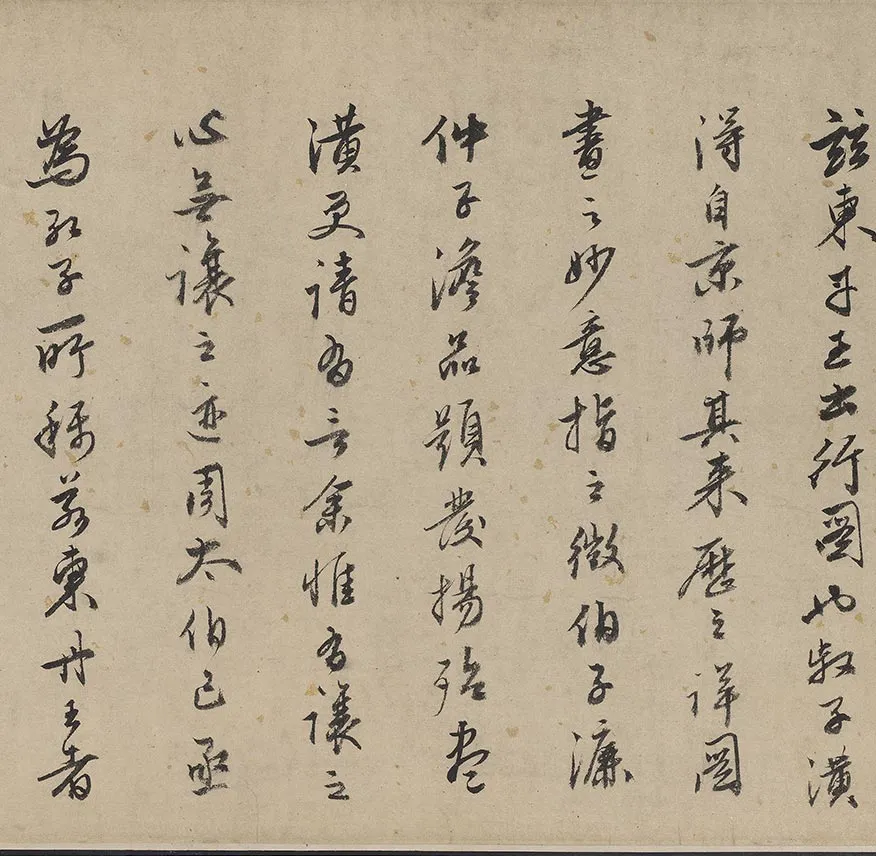 茲東丹王出行圖也叔子潢
得自京師其來歷之詳圖
畫之妙意指之微伯子濂
仲子澹品題發揚殆盡
潢更請為言余惟為讓之
心無讓之迹周太伯已亟
為孔子所稱若東丹王者